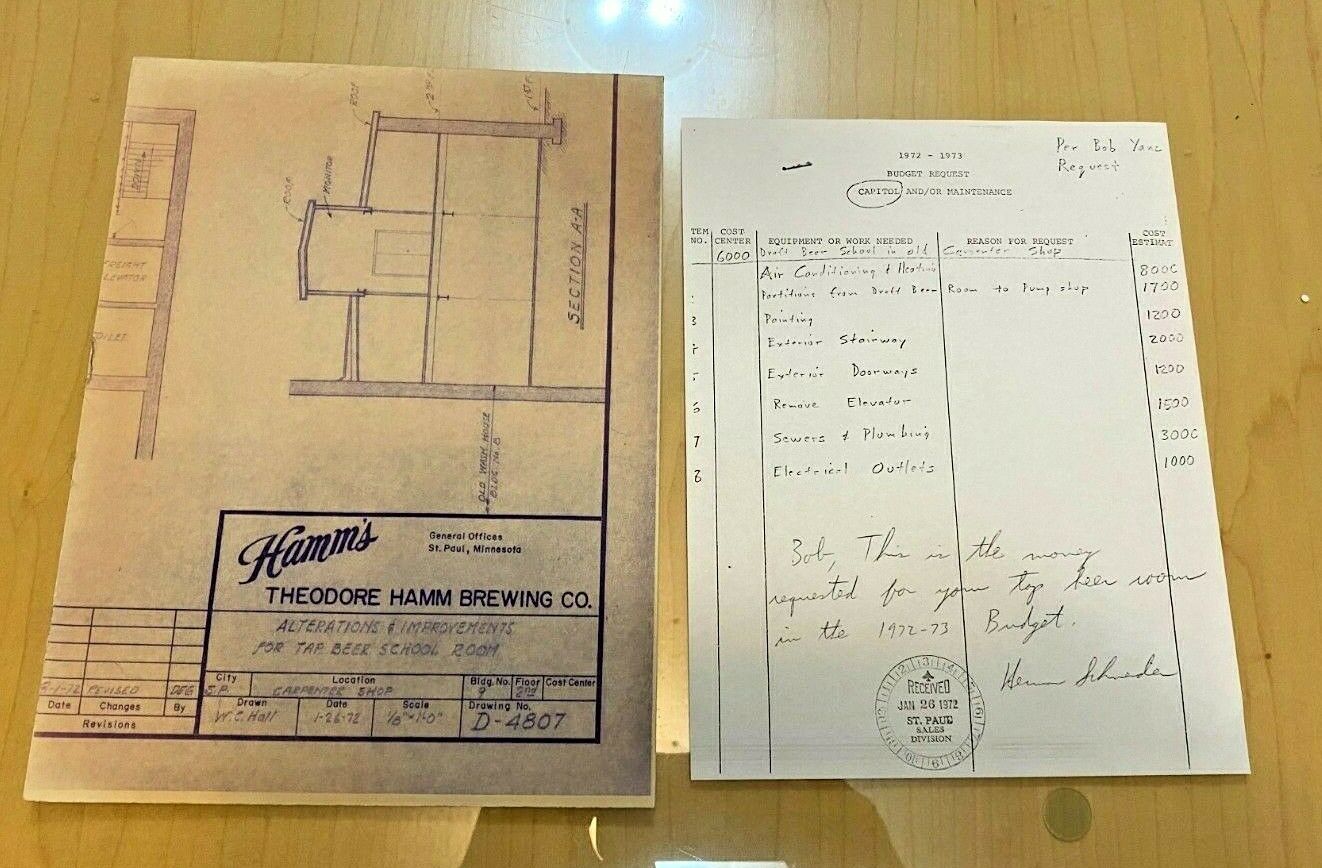 ROOF
MONITOR
ROOF
1ST F
DOWN
FREIGHT
ELEVATOR
TOILET
SECTION A-A
OLD WASH HOUSE
BLDG No. 8
Hamm's
General Offices
St. Paul, Minnesota
THEODORE HAMM BREWING CO.
ALTERATIONS & IMPROVEMENTS
FOR TAP BEER SCHOOL ROOM
City Location Bldg. No. Floor Cost Center
S.P. CARPENTER SHOP 9 2ND
Drawn Date Scale Drawing No.
W.C. Hall 1-26-72 1/8"=1'-0" D-4807
-1-72 REVISED DEG
Date Changes By
Revisions
Per Bob Yanz
Request
1972 - 1973
BUDGET REQUEST
CAPITOL AND/OR MAINTENANCE
TEM NO. COST CENTER EQUIPMENT OR WORK NEEDED REASON FOR REQUEST COST ESTIMAT
6000 Draft Beer School in old Carpenter Shop
Air Conditioning & Heating 8000
Partitions from Draft Beer Room to Pump shop 1700
3 Painting 1200
Exterior Stairway 2000
Exterior Doorways 1200
6 Remove Elevator 1500
7 Sewers & Plumbing 3000
8 Electrical Outlets 1000
Bob, This is the money
requested for your tap beer room
in the 1972-73 Budget.
RECEIVED
JAN 26 1972
ST. PAUL
SALES
DIVISION